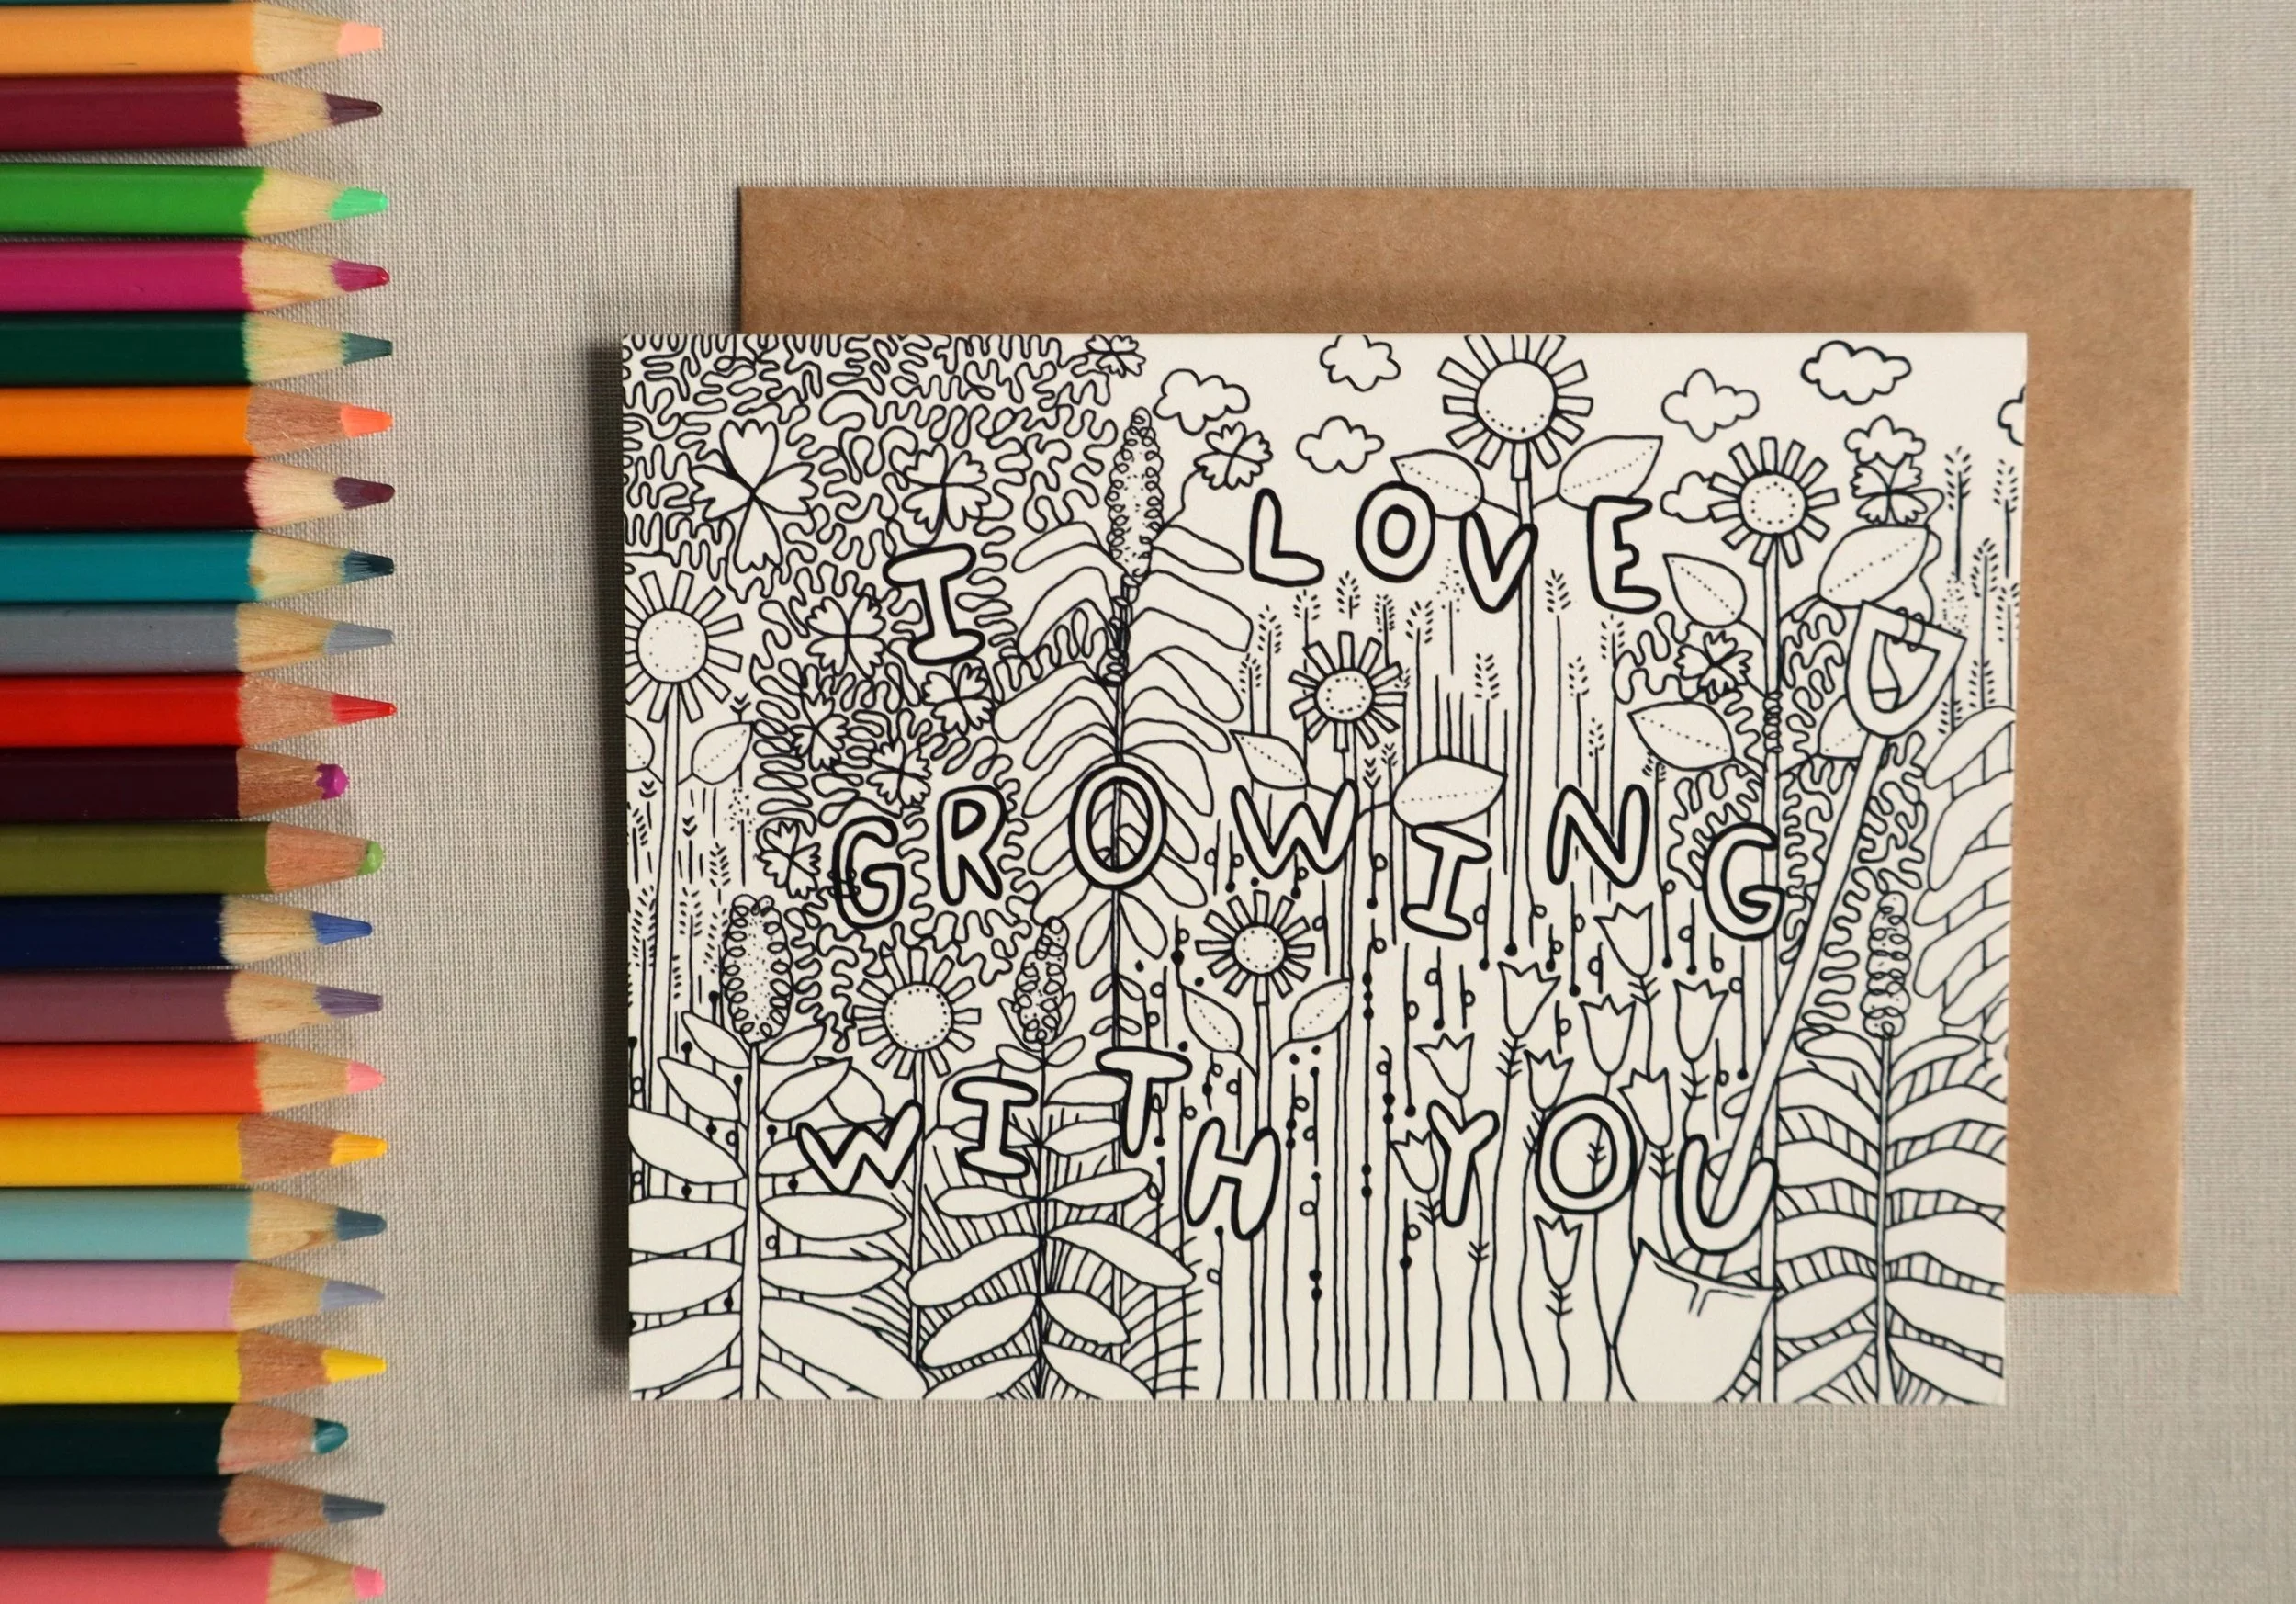 I LOVE
GROWING
WITH YOU